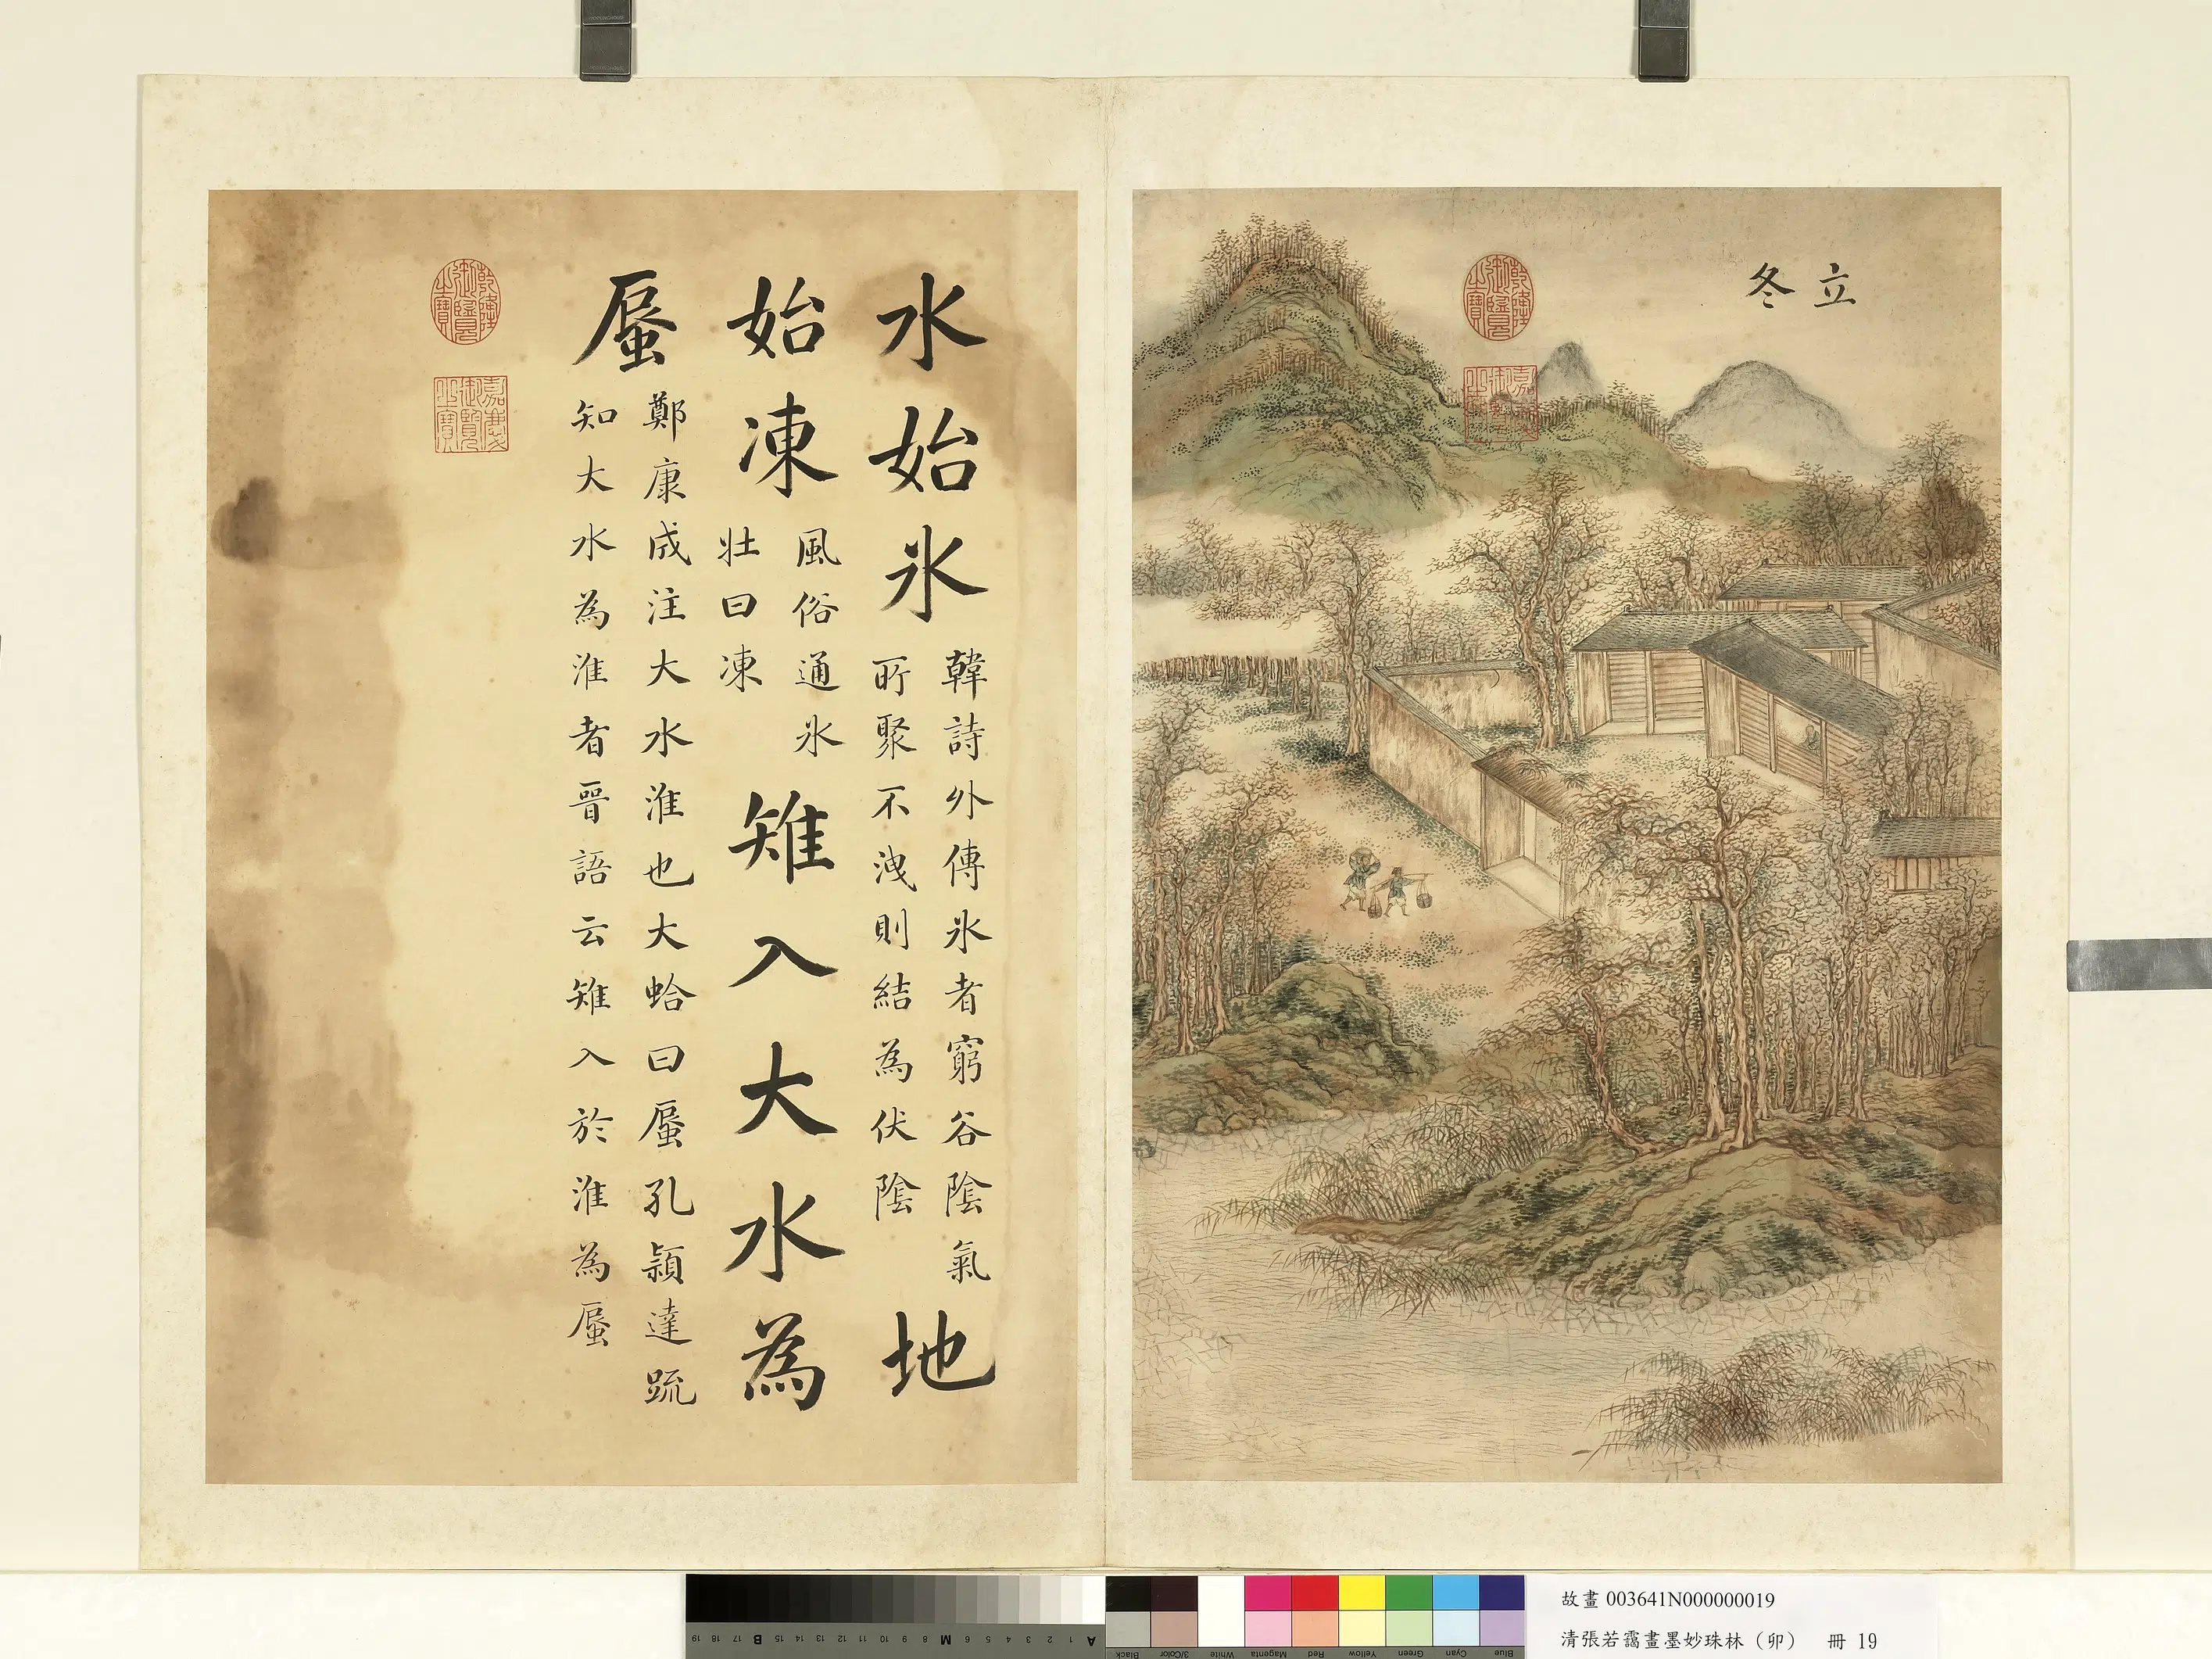 立冬
乾隆御覽之寶
嘉慶御覽之寶
水始氷
韓詩外傳氷者窮谷陰氣
所聚不洩則結為伏陰
地
始凍
風俗通氷
壯曰凍
雉入大水為
蜃
鄭康成注大水淮也大蛤曰蜃孔穎達疏
知大水為淮者晉語云雉入於淮為蜃
乾隆御覽之寶
嘉慶御覽之寶
A 1 2 3 4 5 6 7 8 M 9 10 11 12 13 14 15 B 17 18 19
Blue Cyan Green Yellow Red Magenta White 3/Color Black
故畫 003641N000000019
清張若靄畫墨妙珠林（卯） 冊 19